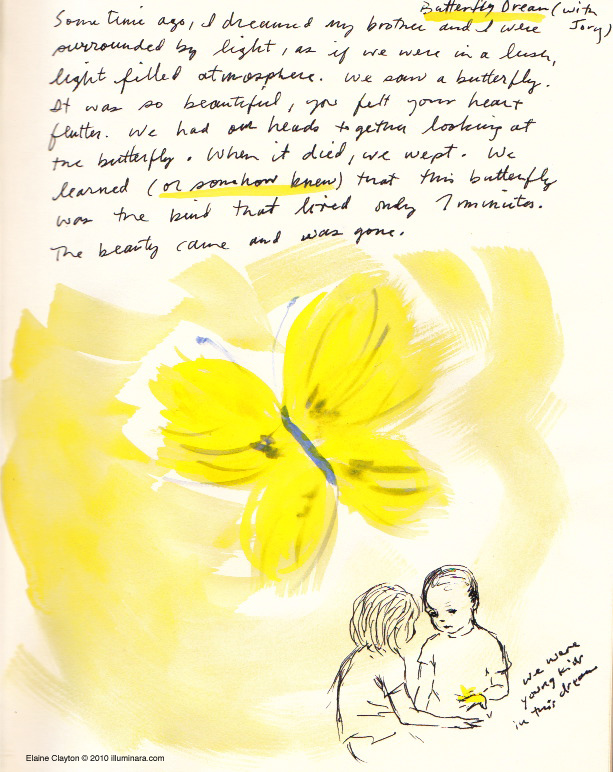 Butterfly Dream (with Jory)
Some time ago, I dreamed my brother and I were
surrounded by light, as if we were in a lush,
light filled atmosphere. We saw a butterfly.
It was so beautiful, you felt your heart
flutter. We had our heads together looking at
the butterfly. When it died, we wept. We
learned (or somehow knew) that this butterfly
was the kind that lived only 7 minutes.
The beauty came and was gone.
we were
young kids
in this dream
Elaine Clayton © 2010 illuminara.com